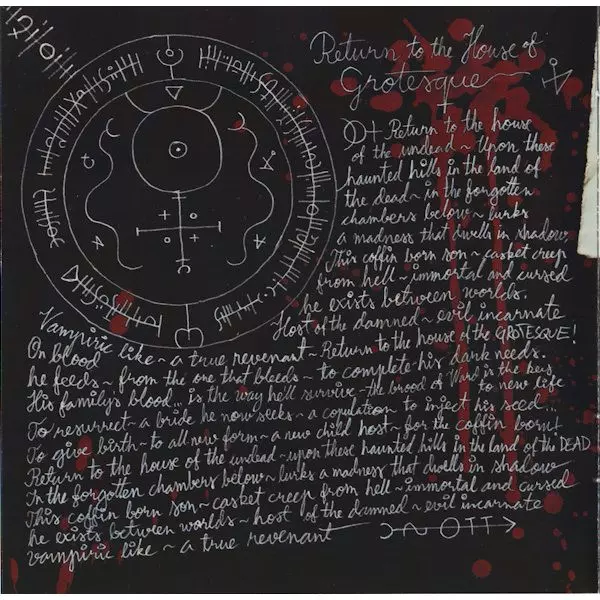 Return to the House of
Grotesque
Return to the house
of the undead ~ Upon these
haunted hills in the land of
the dead ~ in the forgotten
chambers below ~ lurks
a madness that dwells in shadow
This coffin born son ~ casket creep
from hell ~ immortal and cursed
he exists between worlds.
Host of the damned ~ evil incarnate
Vampiric like ~ a true revenant ~ Return to the house of the GROTESQUE!
On blood
he feeds ~ from the one that bleeds ~ to complete his dark needs.
His family's blood... is the way he'll survive ~ the brood of is the key
to new life
To resurrect ~ a bride he now seeks ~ a copulation to inject his seed...
To give birth ~ to all new form ~ a new child host ~ for the coffin born!
Return to the house of the undead ~ upon these haunted hills in the land of the DEAD
In the forgotten chambers below ~ lurks a madness that dwells in shadow
This coffin born son ~ casket creep from hell ~ immortal and cursed
he exists between worlds ~ host of the damned ~ evil incarnate
vampiric like ~ a true revenant